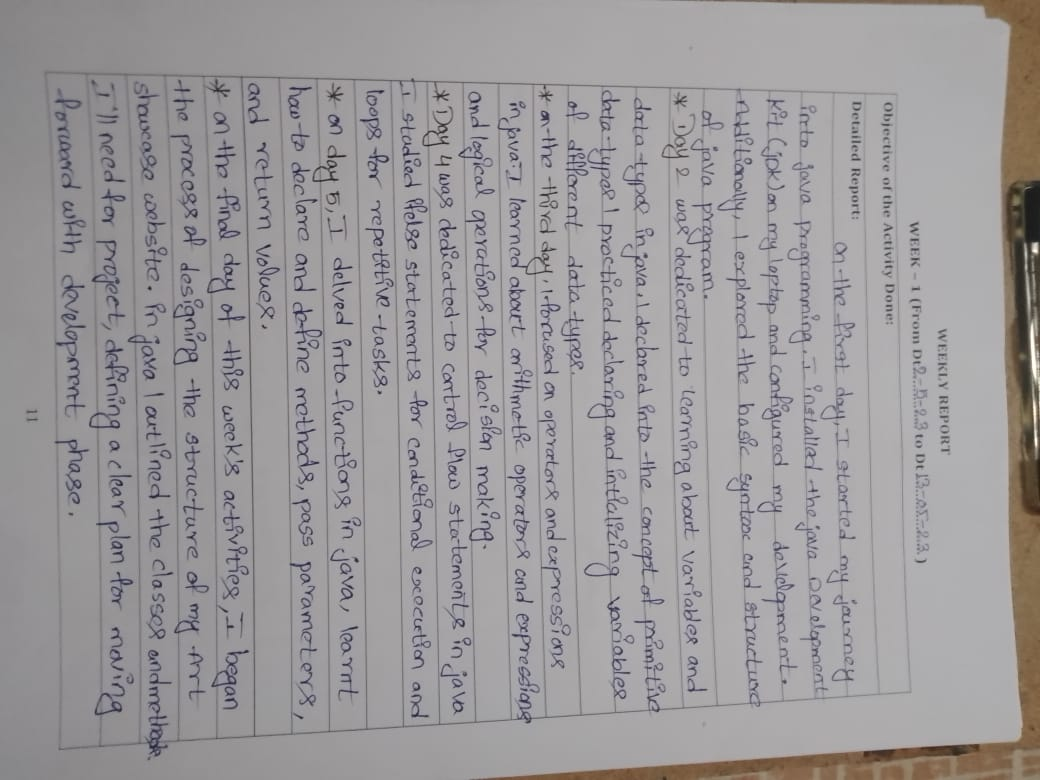 WEEKLY REPORT
WEEK – 1 (From Dt 2-5-23 to Dt 13-05-23)
Objective of the Activity Done:
Detailed Report:
on the first day, I started my journey
into java programming. I installed the java Development
kit (JDK) on my laptop and configured my development.
Additionally, I explored the basic syntax and structure
of java program.
* Day 2 was dedicated to learning about variables and
data-types in java, I declared into the concept of primitive
data-types I practiced declaring and intializing variables
of different data types.
* on the third day, I focused on operators and expressions
in java. I learned about arithmetic operators and expressions
and logical operations for decision making.
* Day 4 was dedicated to control flow statements in java
I studied if else statements for conditional execution and
loops for repetitive tasks.
* on day 5, I delved into functions in java, learnt
how to declare and define methods, pass parameters,
and return values.
* on the final day of this week's activities, I began
the process of designing the structure of my Art
showcase website. in java I outlined the classes and methods.
I'll need for project, defining a clear plan for moving
forward with development phase.
11